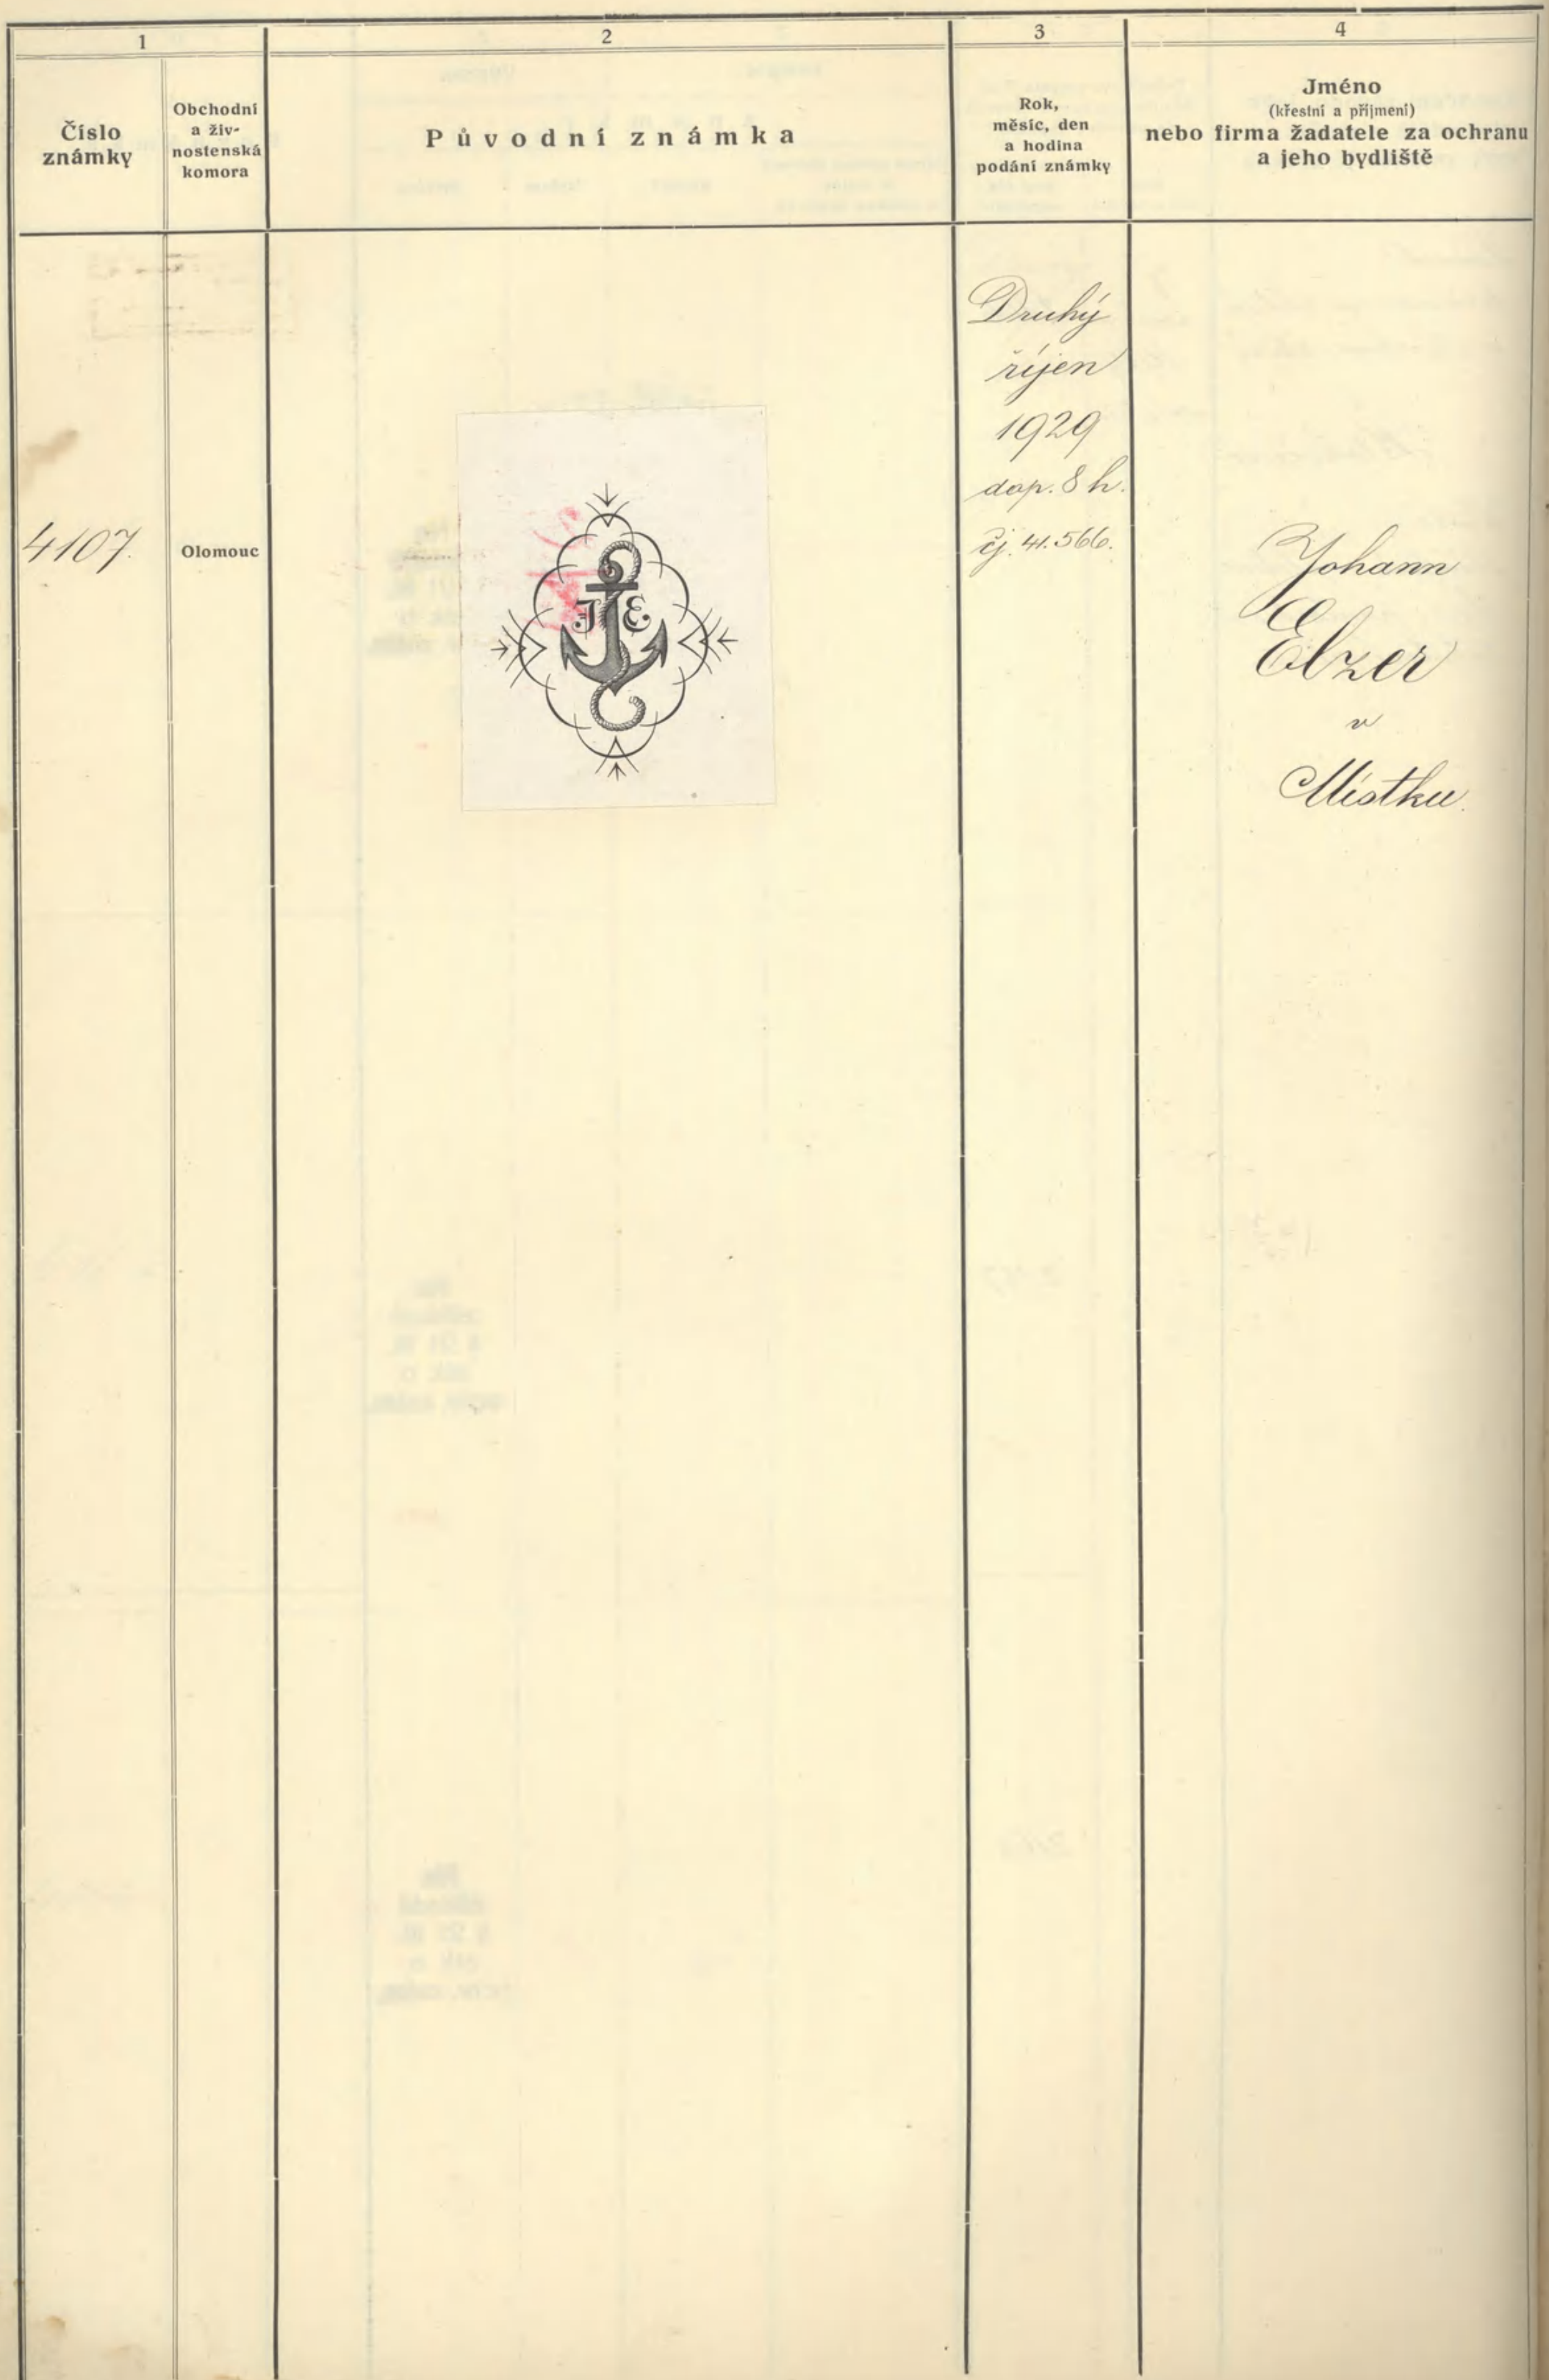 1
2
3
4
Číslo
známky
Obchodní
a živ-
nostenská
komora
Původní známka
Rok,
měsíc, den
a hodina
podání známky
Jméno
(křestní a příjmení)
nebo firma žadatele za ochranu
a jeho bydliště
4107.
Olomouc
J E
Druhý
říjen
1929
dop. 8 h.
čj. 41.566.
Johann
Elzer
v
Místku.